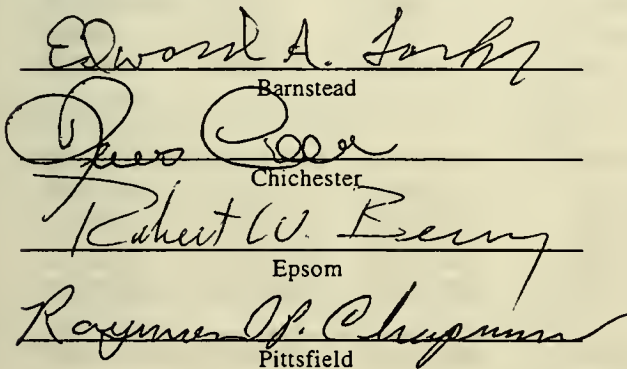 Edward A.
Barnstead
Chichester
Robert W. Berry
Epsom
Raymond P. Chapman
Pittsfield